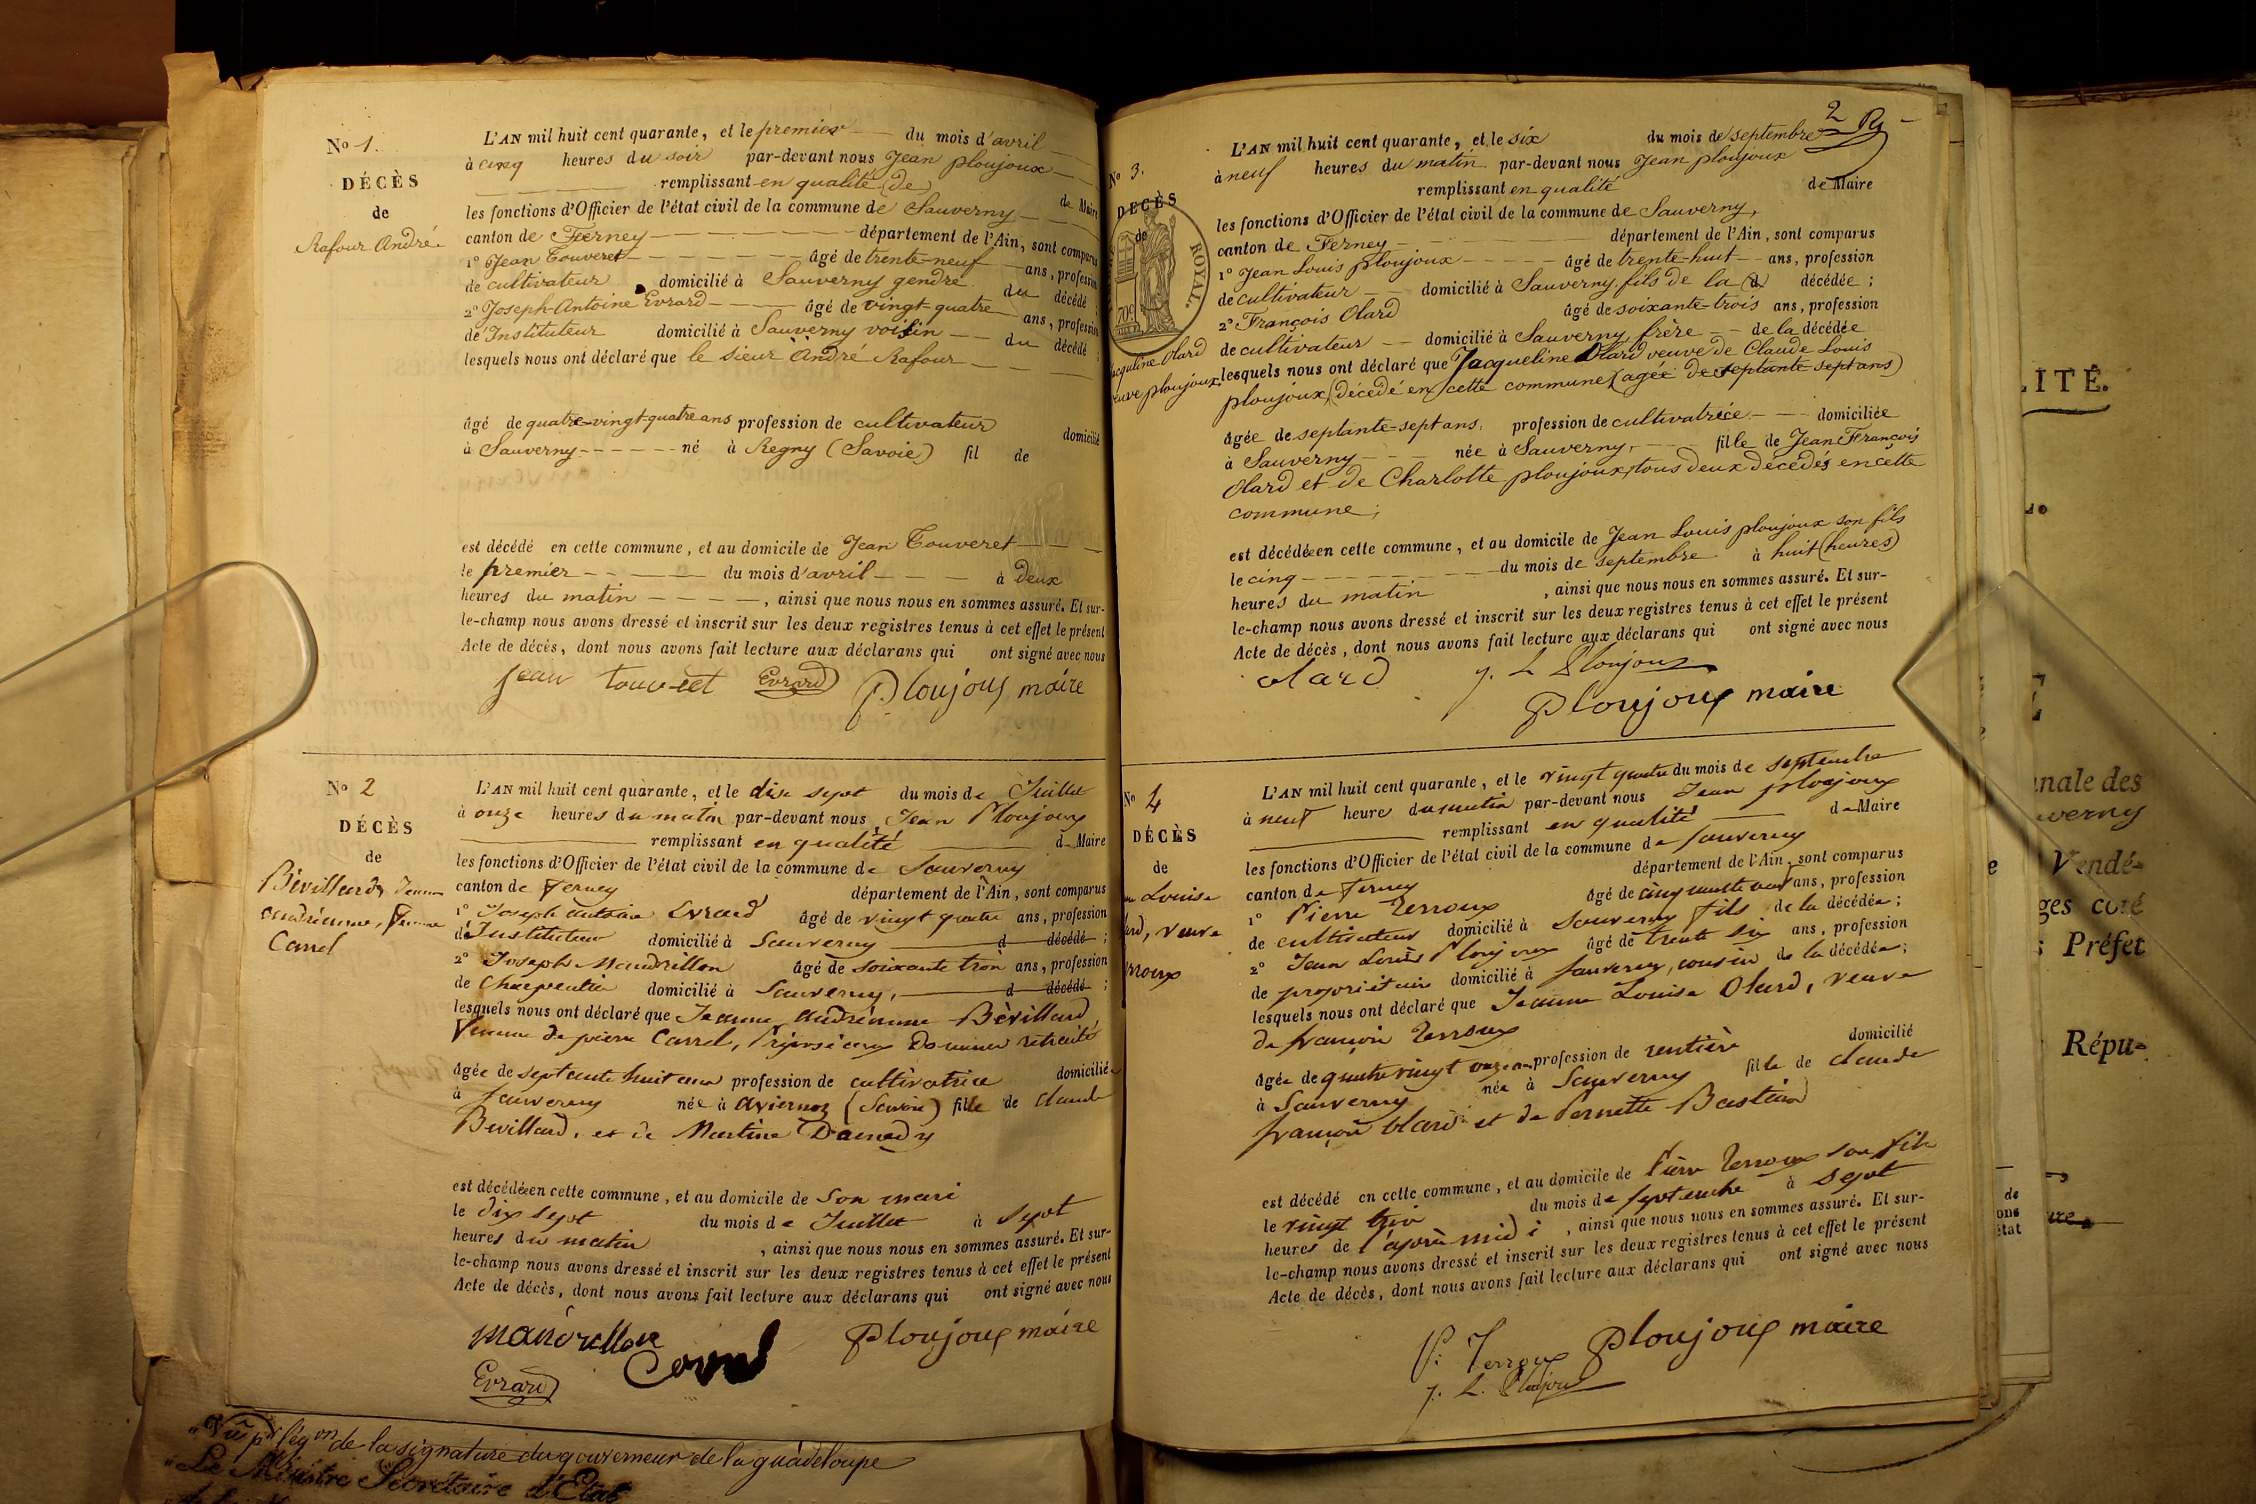 No 1.
DÉCÈS
de
Rafour André.
L'AN mil huit cent quarante, et le premier du mois d'avril
à cinq heures du soir par-devant nous Jean ploujoux
remplissant en qualité (de)
de Maire
les fonctions d'Officier de l'état civil de la commune de Sauverny
canton de Ferney département de l'Ain, sont comparus
1° Jean Touveret âgé de trente-neuf ans, profession
de cultivateur domicilié à Sauverny gendre du décédé ;
2° Joseph-Antoine Evrard âgé de vingt-quatre ans, profession
de Instituteur domicilié à Sauverny voisin du décédé ;
lesquels nous ont déclaré que le sieur André Rafour
âgé de quatre-vingt-quatre ans profession de cultivateur domicilié
à Sauverny né à Regny (Savoie) fil de
est décédé en cette commune, et au domicile de Jean Touveret
le premier du mois d'avril à deux
heures du matin, ainsi que nous nous en sommes assuré. Et sur-
le-champ nous avons dressé et inscrit sur les deux registres tenus à cet effet le présent
Acte de décès, dont nous avons fait lecture aux déclarans qui ont signé avec nous
jean touveret Evrard Ploujoux maire
No 2
DÉCÈS
de
Bévillard, Jeanne
andrienne, femme
Carrel
L'AN mil huit cent quarante, et le dix sept du mois de Juillet
à onze heures du matin par-devant nous Jean Ploujoux
remplissant en qualité d Maire
les fonctions d'Officier de l'état civil de la commune de Sauverny
canton de Ferney département de l'Ain, sont comparus
1° Joseph antoine Evrard âgé de vingt quatre ans, profession
de Instituteur domicilié à Sauverny d décédé ;
2° Joseph Mandrillon âgé de soixante trois ans, profession
de Charpentier domicilié à Sauverny, d décédé ;
lesquels nous ont déclaré que Jeanne andrienne Bévillard,
femme de pierre Carrel, douanier retraité
âgée de septante huit ans profession de cultivatrice domiciliée
à Sauverny née à aviernoz (Savoie) fille de Claude
Bevillard, et de Martine Damedy
est décédée en cette commune, et au domicile de Son mari
le dix sept du mois de Juillet à sept
heures du matin, ainsi que nous nous en sommes assuré. Et sur-
le-champ nous avons dressé et inscrit sur les deux registres tenus à cet effet le présent
Acte de décès, dont nous avons fait lecture aux déclarans qui ont signé avec nous
mandrillon Ploujoux maire
Evrard
"Vu pr légon de la signature du gouverneur de la guadeloupe
"Le Ministre Secrétaire d'Etat
2
No 3.
DÉCÈS
de
ROYAL.
Jacqueline Olard
veuve ploujoux
L'AN mil huit cent quarante, et le six du mois de septembre
à neuf heures du matin par-devant nous Jean ploujoux
remplissant en qualité de Maire
les fonctions d'Officier de l'état civil de la commune de Sauverny,
canton de Ferney département de l'Ain, sont comparus
1° Jean Louis ploujoux âgé de trente-huit ans, profession
de cultivateur domicilié à Sauverny fils de la (d) décédée ;
2° François Olard âgé de soixante-trois ans, profession
de cultivateur domicilié à Sauverny frère de la décédée
lesquels nous ont déclaré que Jacqueline Olard veuve de Claude Louis
ploujoux, (décédé en) cette commune (agée de septante-sept ans)
âgée de septante-sept ans, profession de cultivatrice domiciliée
à Sauverny née à Sauverny, fille de Jean François
Olard et de Charlotte ploujoux, tous deux décédés en cette
commune ;
est décédée en cette commune, et au domicile de Jean Louis ploujoux son fils
le cinq du mois de septembre à huit (heures)
heures du matin, ainsi que nous nous en sommes assuré. Et sur-
le-champ nous avons dressé et inscrit sur les deux registres tenus à cet effet le présent
Acte de décès, dont nous avons fait lecture aux déclarans qui ont signé avec nous
olard j. L Ploujoux
Ploujoux maire
No 4
DÉCÈS
de
Louise
veuve
L'AN mil huit cent quarante, et le vingt quatre du mois de septembre
à neuf heure du matin par-devant nous Jean ploujoux
remplissant en qualité de Maire
les fonctions d'Officier de l'état civil de la commune de Sauverny
canton de Ferney département de l'Ain, sont comparus
1° Pierre Terroux âgé de cinquante neuf ans, profession
de cultivateur domicilié à Sauverny fils de la décédée ;
2° Jean Louis Ploujoux âgé de trente six ans, profession
de propriétaire domicilié à Sauverny, cousin de la décédée ;
lesquels nous ont déclaré que Jeanne Louise Olard, veuve
de françois Terroux
âgée de quatre vingt onze ans profession de rentière domicilié
à Sauverny née à Sauverny fille de claude
françois olard et de Pernette Bastian
est décédé en cette commune, et au domicile de Pierre Terroux son fils
le vingt trois du mois de septembre à sept
heures de l'après midi, ainsi que nous nous en sommes assuré. Et sur-
le-champ nous avons dressé et inscrit sur les deux registres tenus à cet effet le présent
Acte de décès, dont nous avons fait lecture aux déclarans qui ont signé avec nous
P. Terroux Ploujoux maire
j. L. Ploujoux
LITÉ.
Vendé-
Préfet
Répu-